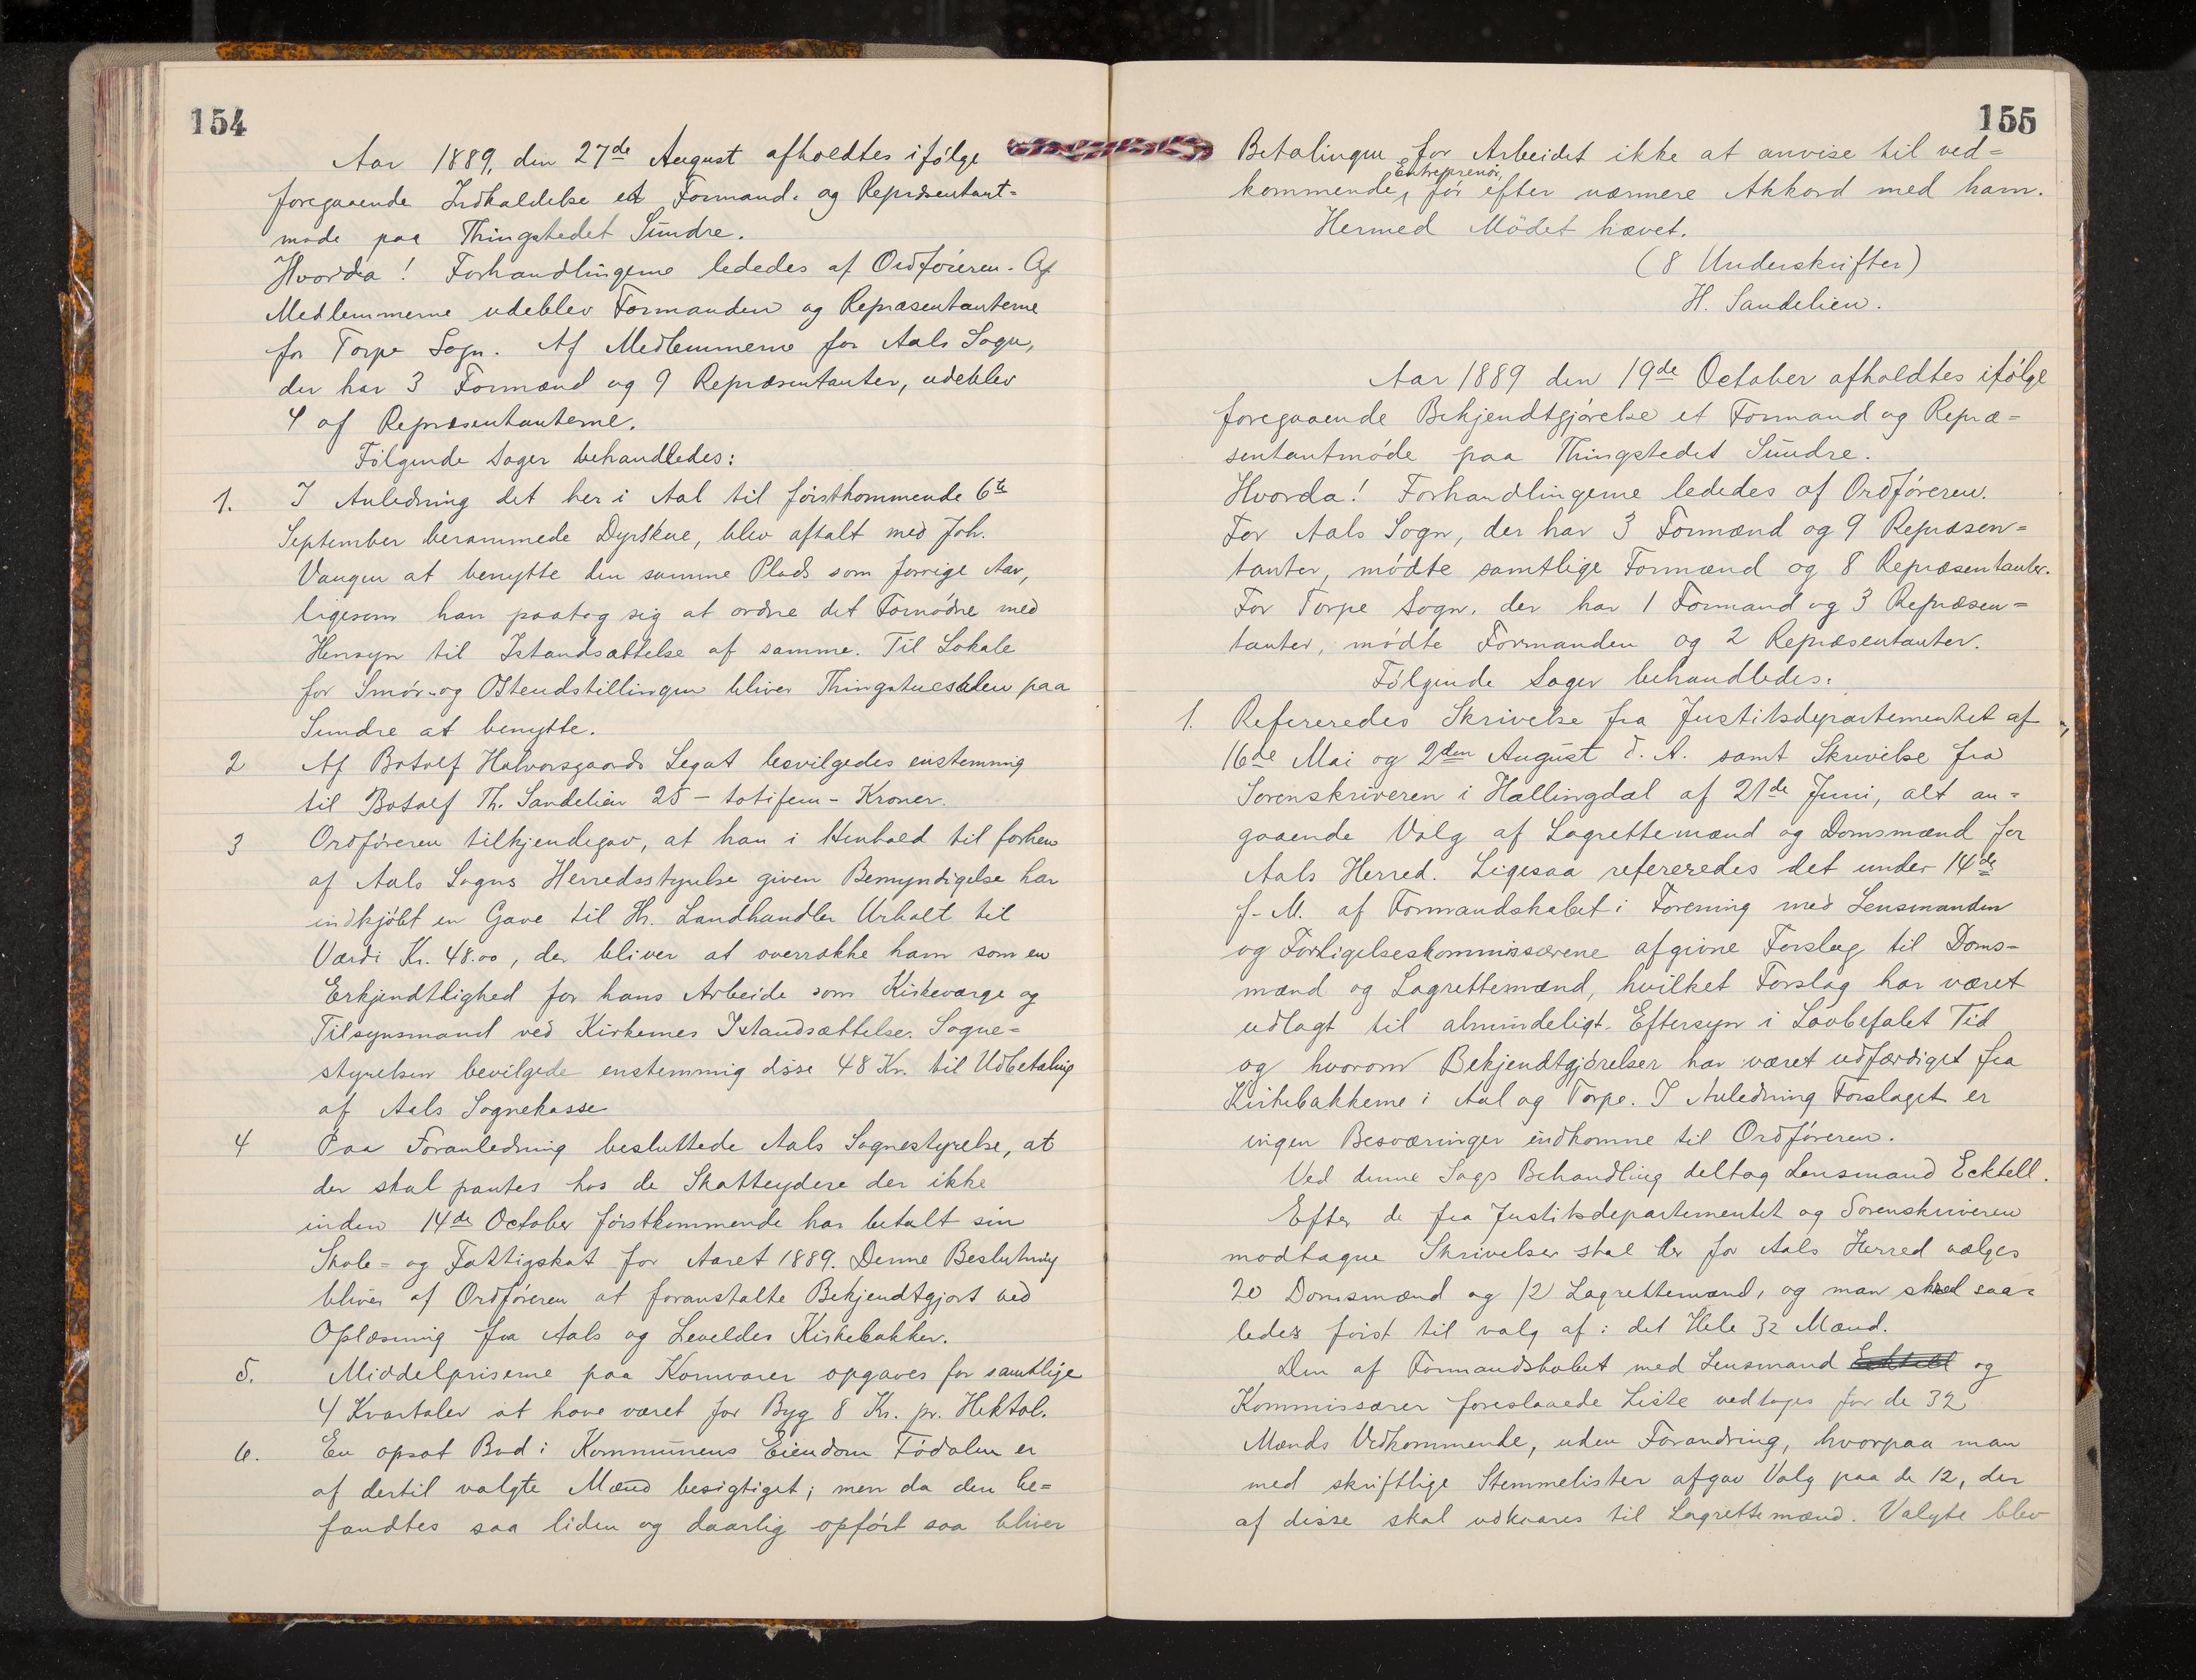 154
Aar 1889, den 27de August afholdtes ifølge
foregaaende Indkaldelse et Formand- og Repræsentant-
møde paa Thingstedet Sundre.
Hvorda! Forhandlingerne lededes af Ordføreren. Af
Medlemmerne udeblev Formanden og Repræsentanterne
for Torpe Sogn. Af Medlemmerne for Aals Sogn,
der har 3 Formænd og 9 Repræsentanter, udeblev
4 af Repræsentanterne.
Følgende Sager behandledes:
1. I Anledning det her i Aal til førstkommende 6te
September berammede Dyrskue, blev aftalt med Joh.
Vangen at benytte den samme Plads som forrige Aar,
ligesom han paatog sig at ordne det Fornødne med
Hensyn til Istandsættelse af samme. Til Lokale
for Smør- og Osteudstillingen bliver Thingstuesalen paa
Sundre at benytte.
2 Af Botolf Halvorsgaards Legat bevilgedes enstemmig
til Botolf Th. Sandelien 25 – totifem – Kroner.
3 Ordføreren tilkjendegav, at han i Henhold til forhen
af Aals Sogns Herredsstyrelse given Bemyndigelse har
indkjøbt en Gave til Hr. Landhandler Urhalt til
Værdi Kr. 48.00, der bliver at overrække ham som en
Erkjendtlighed for hans Arbeide som Kirkeværge og
Tilsynsmand ved Kirkernes Istandsættelse. Sogne-
styrelsen bevilgede enstemmig disse 48 Kr. til Udbetaling
af Aals Sognekasse
4 Paa Foranledning besluttede Aals Sognestyrelse, at
der skal pantes hos de Skatteydere der ikke
inden 14de October førstkommende har betalt sin
Skole- og Fattigskat for Aaret 1889. Denne Beslutning
bliver af Ordføreren at foranstalte Bekjendtgjort ved
Oplæsning fra Aals og Leveldes Kirkebakker.
5. Middelpriserne paa Kornvarer opgaves for samtlige
4 Kvartaler at have været for Byg 8 Kr. pr. Hektol.
6. En opsat Bod i Kommunens Eiendom Fødalen er
af dertil valgte Mænd besigtiget; men da den be-
fandtes saa liden og daarlig opført saa bliver
155
Betalingen for Arbeidet ikke at anvise til ved-
kommende Entreprenør, før efter nærmere Akkord med ham.
Hermed Mødet hævet.
(8 Underskrifter)
H. Sandelien.
Aar 1889 den 19de October afholdtes ifølge
foregaaende Bekjendtgjørelse et Formand og Repræ-
sentantmøde paa Thingstedet Sundre.
Hvorda! Forhandlingerne lededes af Ordføreren.
For Aals Sogn, der har 3 Formænd og 9 Repræsen-
tanter, mødte samtlige Formænd og 8 Repræsentanter.
For Torpe Sogn, der har 1 Formand og 3 Repræsen-
tanter, mødte Formanden og 2 Repræsentanter.
Følgende Sager behandledes:
1. Refereredes Skrivelse fra Justitsdepartementet af
16de Mai og 2den August d. A. samt Skrivelse fra
Sorenskriveren i Hallingdal af 21de Juni, alt an-
gaaende Valg af Lagrettemænd og Domsmænd for
Aals Herred. Ligesaa refereredes det under 14de
f. M. af Formandskabet i Forening med Lensmanden
og Forligelseskommissærene afgivne Forslag til Doms-
mænd og Lagrettemænd, hvilket Forslag har været
udlagt til almindeligt Eftersyn i Lovbefalet Tid
og hvorom Bekjendtgjørelser har været udfærdiget fra
Kirkebakkerne i Aal og Torpe. I Anledning Forslaget er
ingen Besværinger indkomne til Ordføreren.
Ved denne Sags Behandling deltog Lensmand Ecktell.
Efter de fra Justitsdepartementet og Sorenskriveren
modtagne Skrivelser skal der for Aals Herred vælges
20 Domsmænd og 12 Lagrettemænd, og man skred saa-
ledes først til valg af i det Hele 32 Mænd.
Den af Formandskabet med Lensmand Ecktell og
Kommissærer foreslaaede Liste vedtoges for de 32
Mænds Vedkommende, uden Forandring, hvorpaa man
med skriftlige Stemmelister afgav Valg paa de 12, der
af disse skal udkaares til Lagrettemænd. Valgte blev